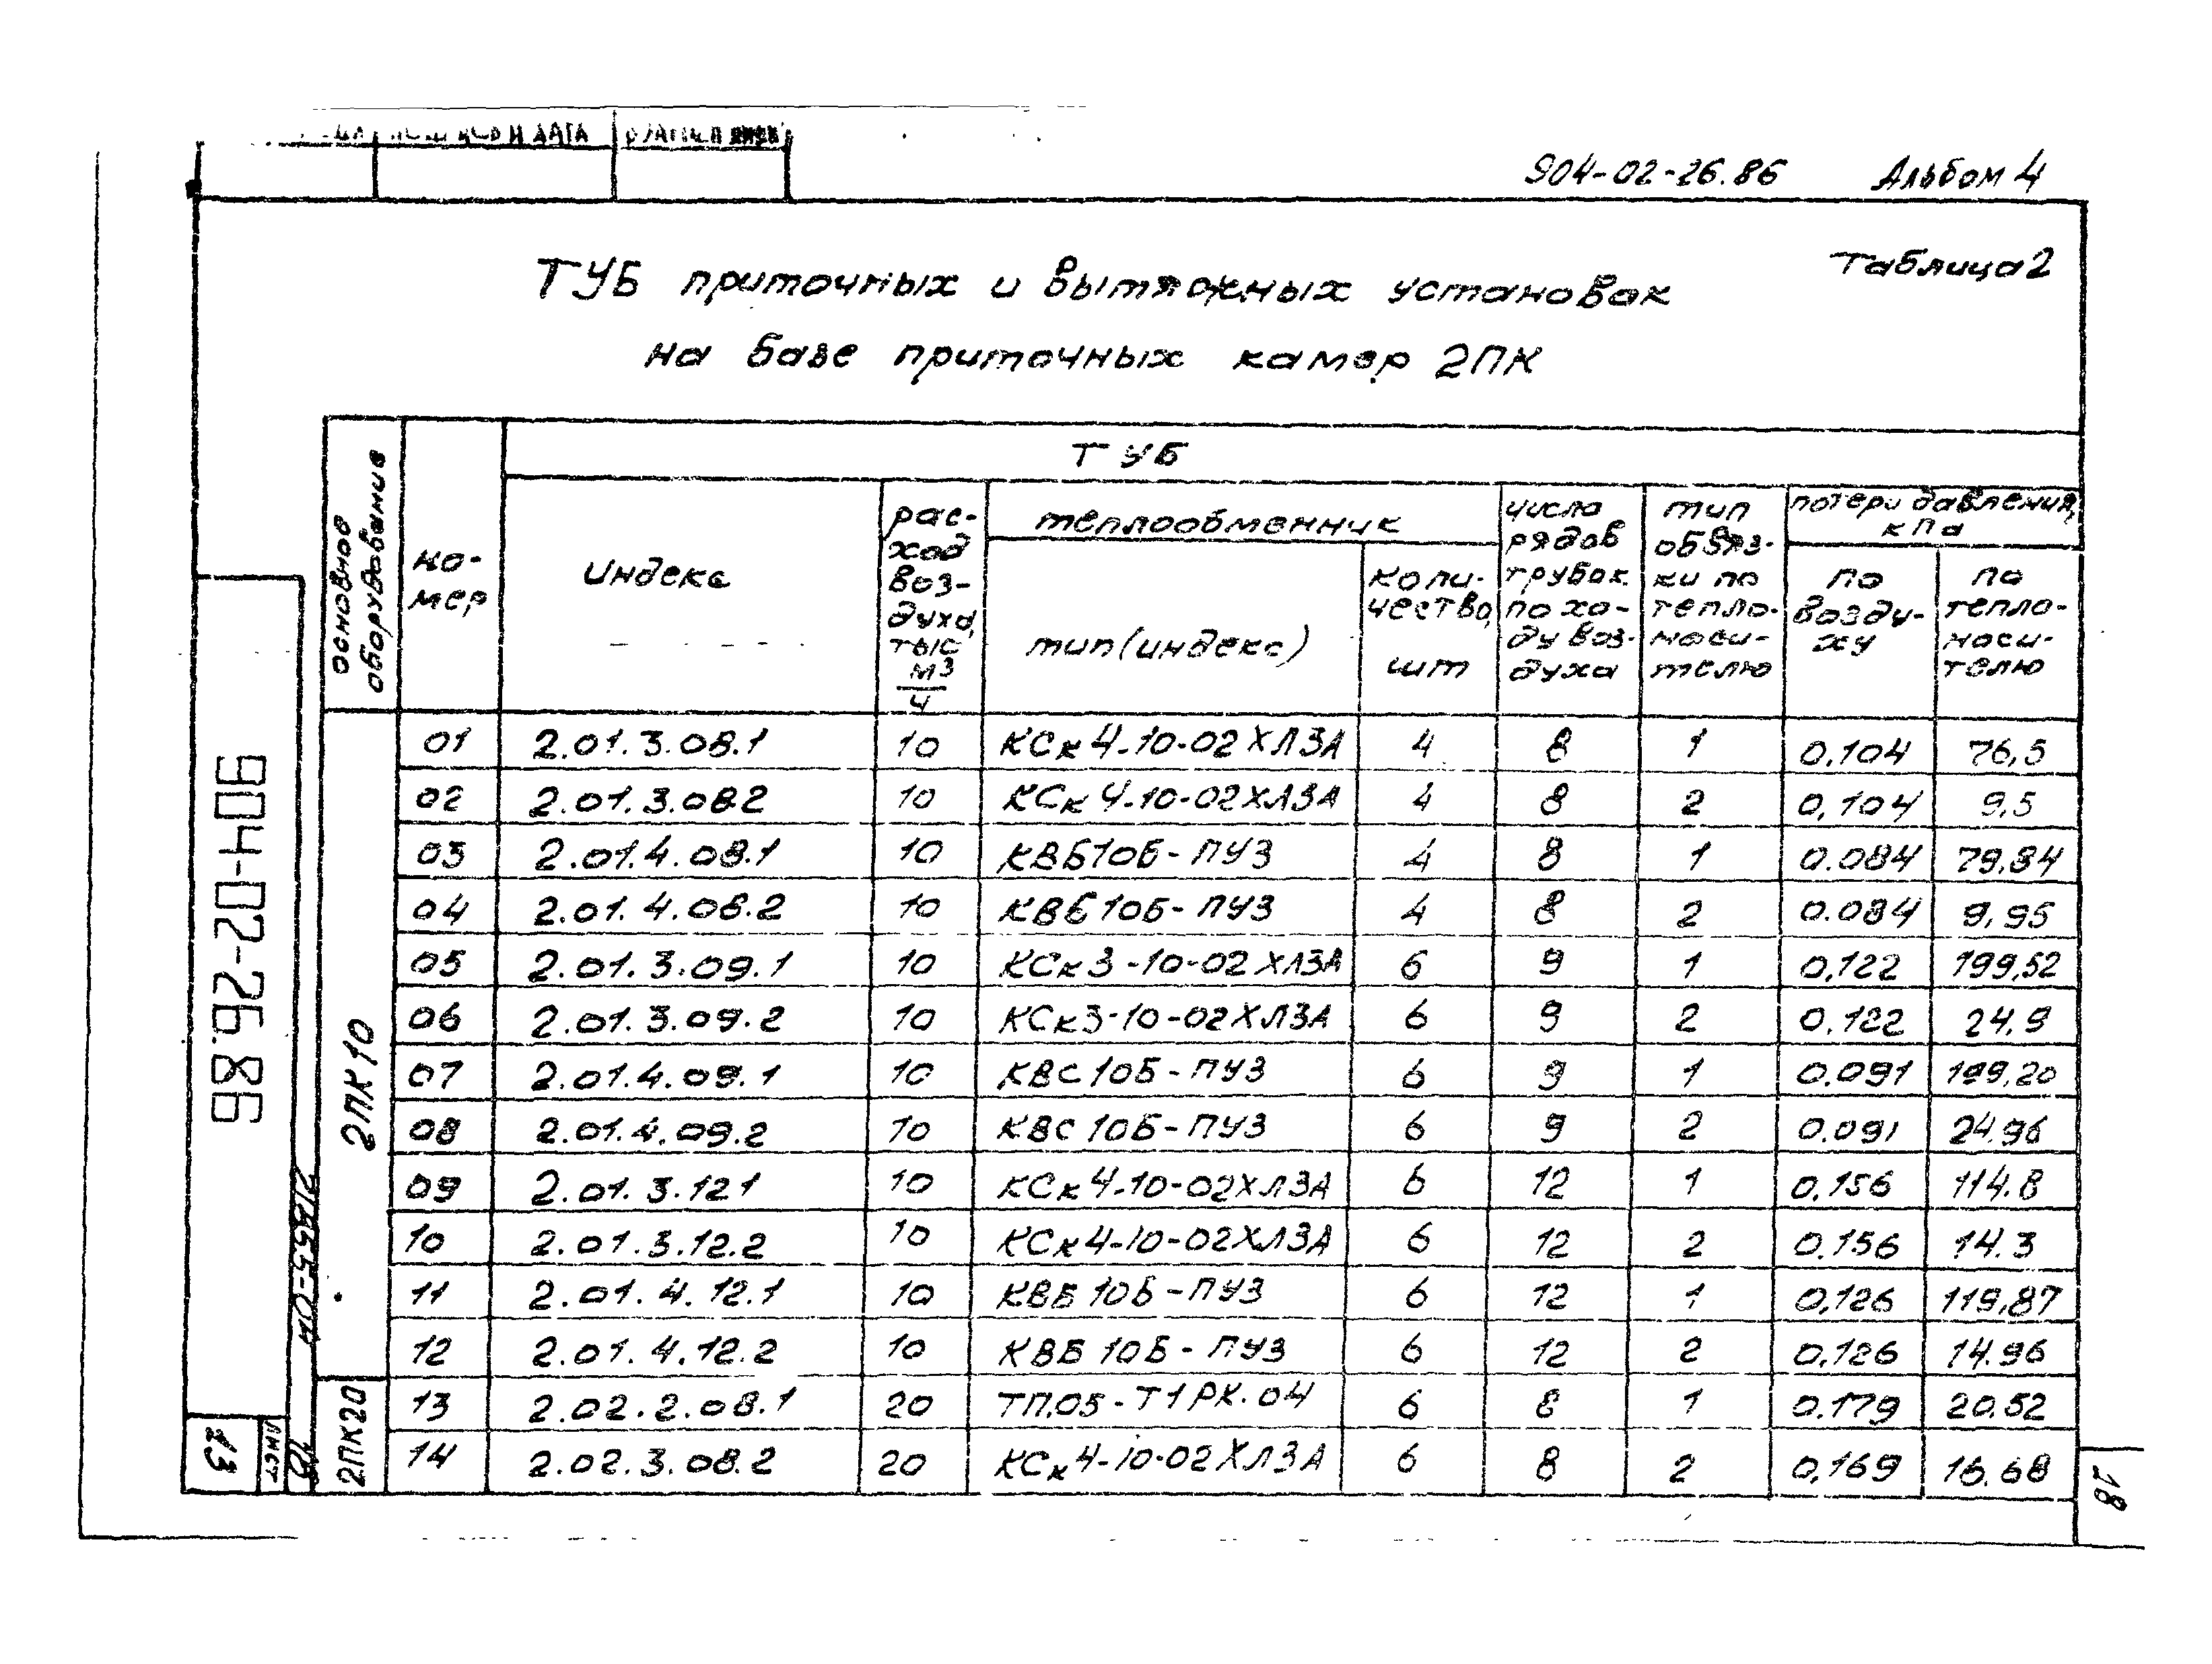 И ДАТА
904-02-26.86 Альбом 4
Таблица 2
ТУБ приточных и вытяжных установок
на базе приточных камер 2ПК
основное оборудование
но-
мер
ТУБ
индекс
рас-
ход
воз-
духа,
тыс
м3
ч
теплообменник
тип (индекс)
коли-
чество,
шт
число
рядов
трубок
по хо-
ду воз-
духа
тип
обвяз-
ки по
тепло-
носи-
телю
потери давления,
кПа
по
возду-
ху
по
тепло-
носи-
телю
2ПК10
01 2.01.3.08.1 10 КСк 4-10-02ХЛ3А 4 8 1 0,104 76,5
02 2.01.3.08.2 10 КСк 4-10-02ХЛ3А 4 8 2 0,104 9,5
03 2.01.4.08.1 10 КВБ10Б-ПУ3 4 8 1 0.084 79,84
04 2.01.4.08.2 10 КВБ10Б-ПУ3 4 8 2 0.084 9,95
05 2.01.3.09.1 10 КСк3-10-02ХЛ3А 6 9 1 0,122 199,52
06 2.01.3.09.2 10 КСк3-10-02ХЛ3А 6 9 2 0,122 24.9
07 2.01.4.09.1 10 КВС10Б-ПУ3 6 9 1 0.091 199,20
08 2.01.4.09.2 10 КВС10Б-ПУ3 6 9 2 0.091 24.96
09 2.01.3.12.1 10 КСк4-10-02ХЛ3А 6 12 1 0,156 114.8
10 2.01.3.12.2 10 КСк4-10-02ХЛ3А 6 12 2 0.156 14.3
11 2.01.4.12.1 10 КВБ10Б-ПУ3 6 12 1 0,126 119,87
12 2.01.4.12.2 10 КВБ10Б-ПУ3 6 12 2 0,126 14.96
2ПК20
13 2.02.2.08.1 20 ТП.05-Т1РК.04 6 8 1 0.179 20.52
14 2.02.3.08.2 20 КСк4-10-02ХЛ3А 6 8 2 0,169 16.68
904-02-26.86
21865-04
Лист
13
18
18